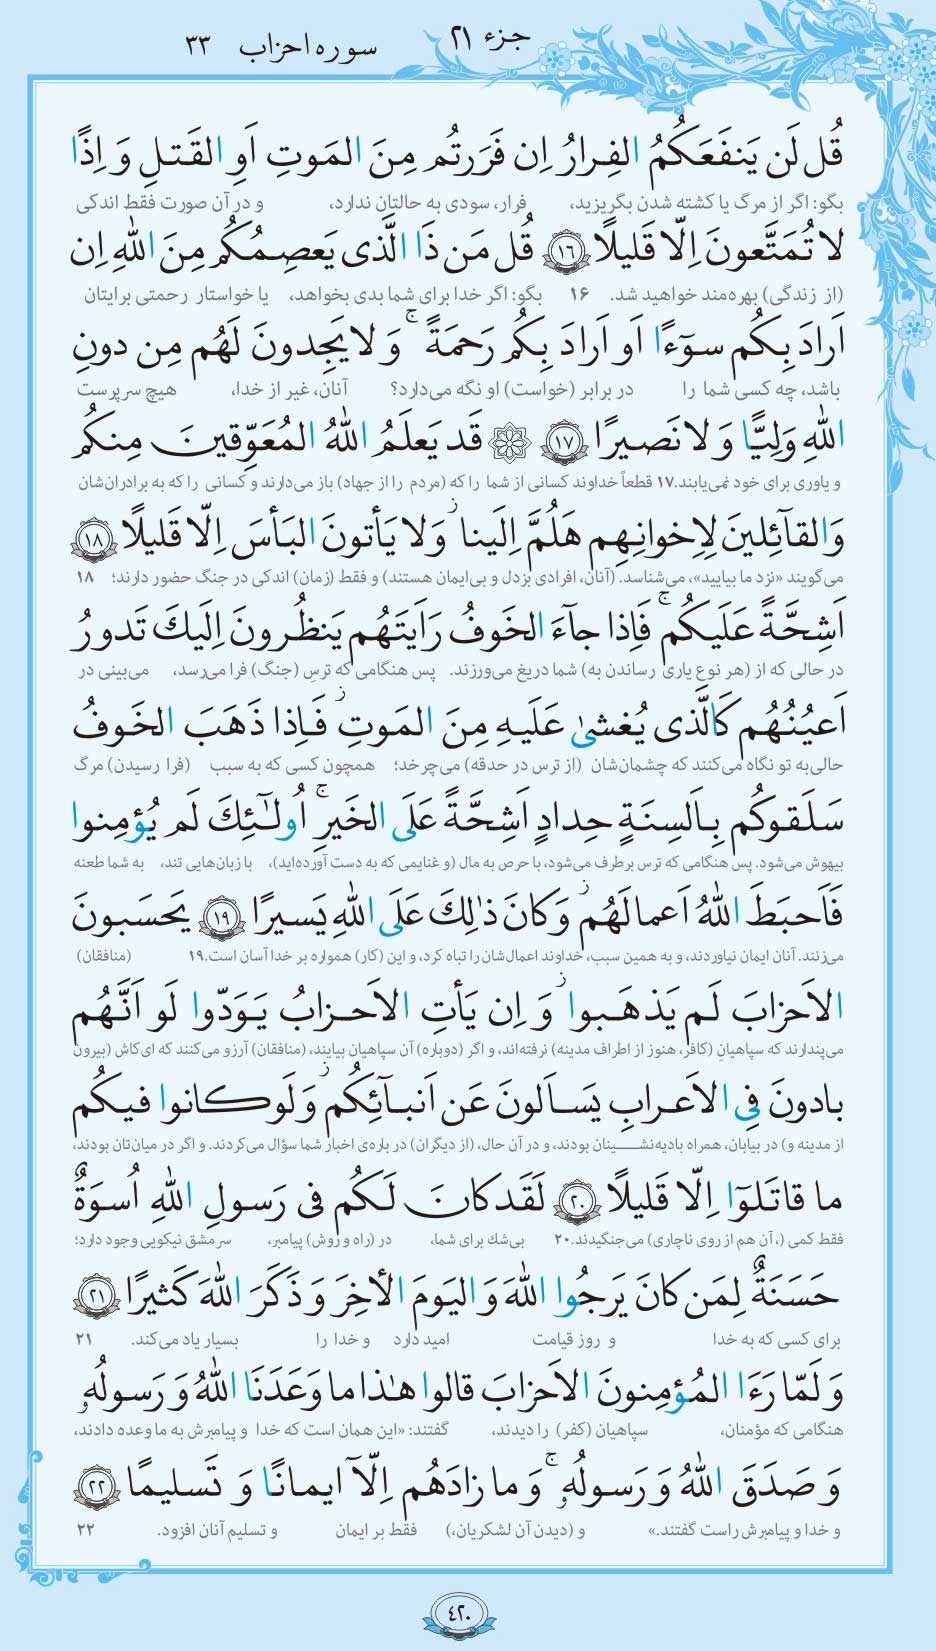 جزء ۲۱ سوره احزاب ۳۳
قُل لَن يَنفَعَكُمُ الفِرارُ اِن فَرَرتُم مِنَ المَوتِ اَوِ القَتلِ وَ اِذًا
بگو: اگر از مرگ یا کشته شدن بگریزید، فرار، سودی به حالتان ندارد، و در آن صورت فقط اندکی
لا تُمَتَّعونَ اِلّا قَليلًا ﴿۱۶﴾ قُل مَن ذَا الَّذی يَعصِمُكُم مِنَ اللهِ اِن
(از زندگی) بهره‌مند خواهید شد. ۱۶ بگو: اگر خدا برای شما بدی بخواهد، یا خواستار رحمتی برایتان
اَرادَ بِكُم سوٓءًا اَو اَرادَ بِكُم رَحمَةً ۚ وَ لا يَجِدونَ لَهُم مِن دونِ
باشد، چه کسی شما را در برابر (خواست) او نگه می‌دارد؟ آنان، غیر از خدا، هیچ سرپرست
اللهِ وَلِيًّا وَ لا نَصيرًا ﴿۱۷﴾ ۞ قَد يَعلَمُ اللهُ المُعَوِّقينَ مِنكُم
و یاوری برای خود نمی‌یابند.۱۷ قطعاً خداوند کسانی از شما را که (مردم را از جهاد) باز می‌دارند و کسانی را که به برادران‌شان
وَ القآئِلينَ لِاِخوانِهِم هَلُمَّ اِلَينا ۖ وَ لا يَأتونَ البَأسَ اِلّا قَليلًا ﴿۱۸﴾
می‌گویند «نزد ما بیایید»، می‌شناسد. (آنان، افرادی بزدل و بی‌ایمان هستند) و فقط (زمان) اندکی در جنگ حضور دارند؛ ۱۸
اَشِحَّةً عَلَيكُم ۚ فَاِذا جآءَ الخَوفُ رَاَيتَهُم يَنظُرونَ اِلَيكَ تَدورُ
در حالی که از (هر نوع یاری رساندن به) شما دریغ می‌ورزند. پس هنگامی که ترسِ (جنگ) فرا می‌رسد، می‌بینی در
اَعيُنُهُم كَالَّذی يُغشىٰ عَلَيهِ مِنَ المَوتِ ۖ فَاِذا ذَهَبَ الخَوفُ
حالی‌به تو نگاه می‌کنند که چشمان‌شان (از ترس در حدقه) می‌چرخد؛ همچون کسی که به سبب (فرا رسیدن) مرگ
سَلَقوكُم بِاَلسِنَةٍ حِدادٍ اَشِحَّةً عَلَى الخَيرِ ۚ اُولٰٓئِكَ لَم يُؤمِنوا
بیهوش می‌شود. پس هنگامی که ترس برطرف می‌شود، با حرص به مال (و غنایمی که به دست آورده‌اید)، با زبان‌هایی تند، به شما طعنه
فَاَحبَطَ اللهُ اَعمالَهُم ۖ وَ كانَ ذٰلِكَ عَلَى اللهِ يَسيرًا ﴿۱۹﴾ يَحسَبونَ
می‌زنند. آنان ایمان نیاوردند، و به همین سبب، خداوند اعمال‌شان را تباه کرد، و این (کار) همواره بر خدا آسان است.۱۹ (منافقان)
الاَحزابَ لَم يَذهَبوا ۖ وَ اِن يَأتِ الاَحزابُ يَوَدّوا لَو اَنَّهُم
می‌پندارند که سپاهیانِ (کافر، هنوز از اطراف مدینه) نرفته‌اند، و اگر (دوباره) آن سپاهیان بیایند، (منافقان) آرزو می‌کنند که ای‌کاش (بیرون
بادونَ فِی الاَعرابِ يَسـاَلونَ عَن اَنبآئِكُم ۖ وَ لَو كانوا فيكُم
از مدینه و) در بیابان، همراه بادیه‌نشینان بودند، و در آن حال، (از دیگران) در باره‌ی اخبار شما سؤال می‌کردند. و اگر در میان‌تان بودند،
ما قاتَلوٓا اِلّا قَليلًا ﴿۲۰﴾ لَقَد كانَ لَكُم فی رَسولِ اللهِ اُسوَةٌ
فقط کمی (، آن هم از روی ناچاری) می‌جنگیدند.۲۰ بی‌شك برای شما، در (راه و روش) پیامبر، سرمشق نیکویی وجود دارد؛
حَسَنَةٌ لِمَن كانَ يَرجُوا اللهَ وَ اليَومَ الأخِرَ وَ ذَكَرَ اللهَ كَثيرًا ﴿۲۱﴾
برای کسی که به خدا و روز قیامت امید دارد و خدا را بسیار یاد می‌کند. ۲۱
وَ لَمّا رَءَا المُؤمِنونَ الاَحزابَ قالوا هـٰذا ما وَعَدَنَا اللهُ وَ رَسولُهٗ
هنگامی که مؤمنان، سپاهیان (کفر) را دیدند، گفتند: «این همان است که خدا و پیامبرش به ما وعده دادند،
وَ صَدَقَ اللهُ وَ رَسولُهٗ ۚ وَ ما زادَهُم اِلّآ ايمانًا وَ تَسليمًا ﴿۲۲﴾
و خدا و پیامبرش راست گفتند.» و (دیدن آن لشکریان،) فقط بر ایمان و تسلیم آنان افزود. ۲۲
۴۲۰